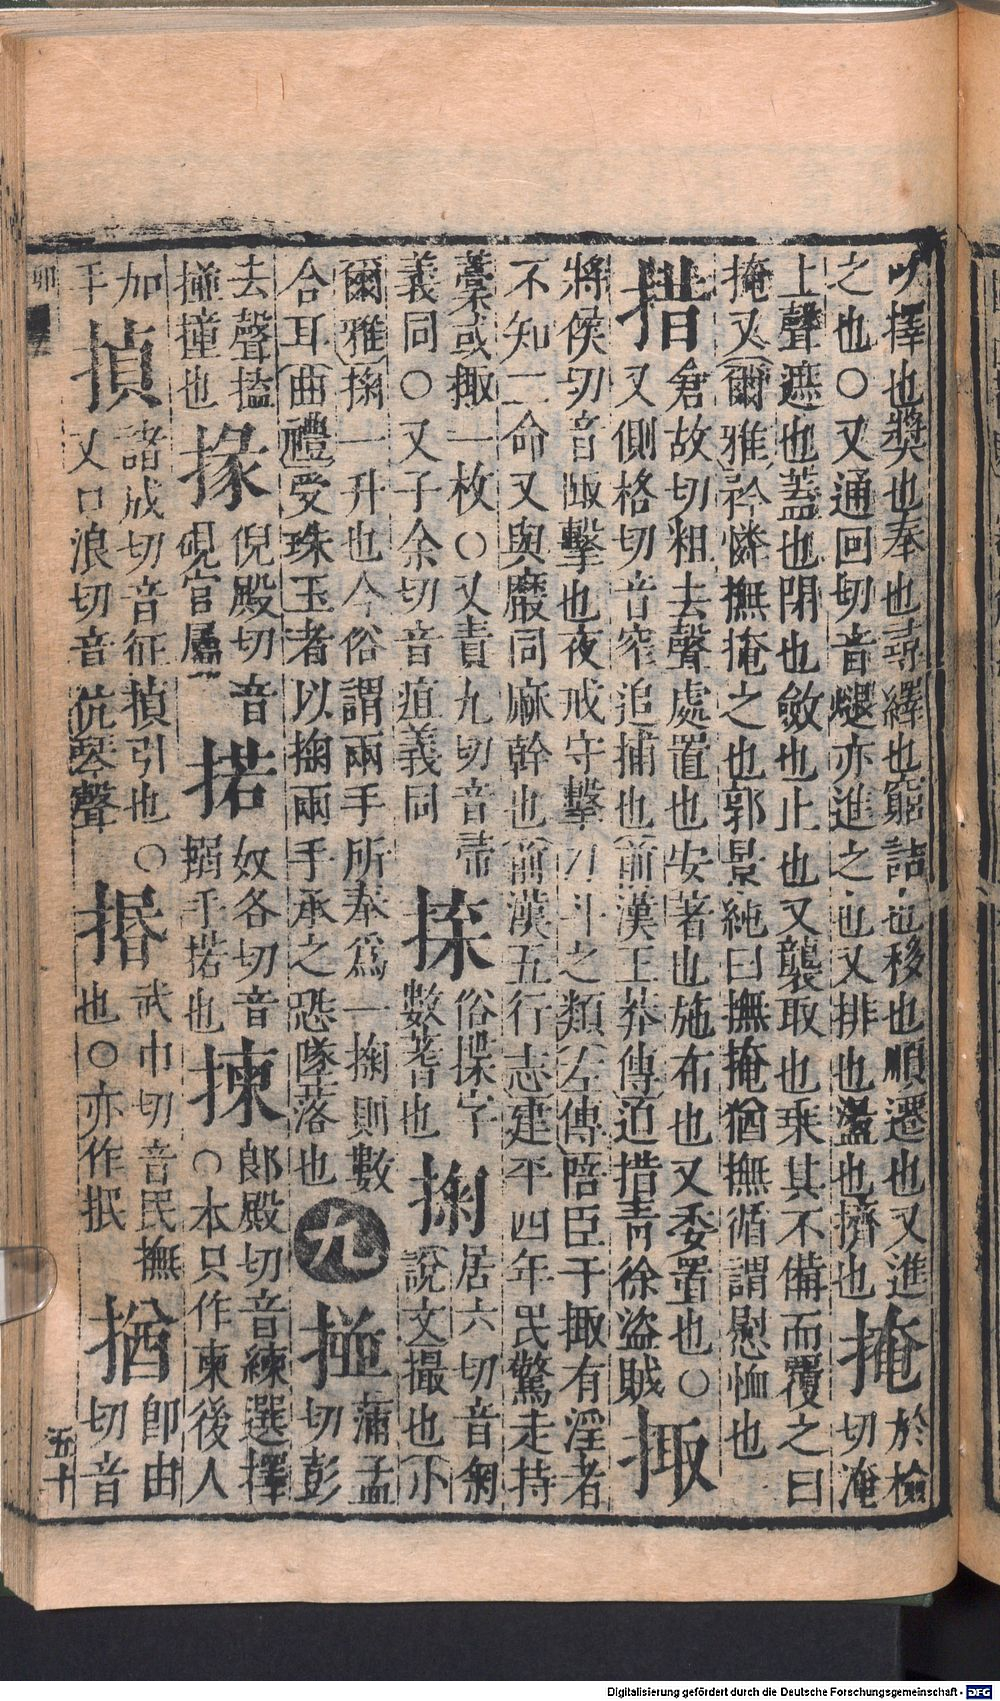 以擇也獎也奉也尋繹也窮詰也移也順遷也又進
之也○又通回切音蹆亦進之也又排也盪也擠也
掩
於檢
切淹
上聲遮也蓋也閉也斂也止也又襲取也乘其不備而覆之曰
掩又爾雅矜憐撫掩之也郭景純曰撫掩猶撫循謂慰恤也
措
倉故切粗去聲處置也安著也施布也又委置也○
又側格切音窄追捕也前漢王莽傳迫措青徐盜賊
掫
將侯切音陬擊也夜戒守擊刁斗之類左傳陪臣干掫有淫者
不知二命又與黀同麻幹也前漢五行志建平四年民驚走持
藁或掫一枚○又責九切音帚
義同○又子余切音疽義同
俗揲字
數蓍也
掬
居六切音匊
說文撮也小
爾雅掬一升也今俗謂兩手所奉爲一掬則數
合耳曲禮受珠玉者以掬兩手承之恐墜落也
九
掽
蒲孟
切彭
去聲搕
掽撞也
掾
倪殿切音
硯官屬
掿
奴各切音
搦手掿也
揀
郞殿切音練選擇
○本只作柬後人
加
手
揁
諸成切音征揁引也○
又口浪切音伉琴聲
捪
武巾切音民撫
也○亦作抿
揂
卽由
切音
卯
五十
Digitalisierung gefördert durch die Deutsche Forschungsgemeinschaft - DFG